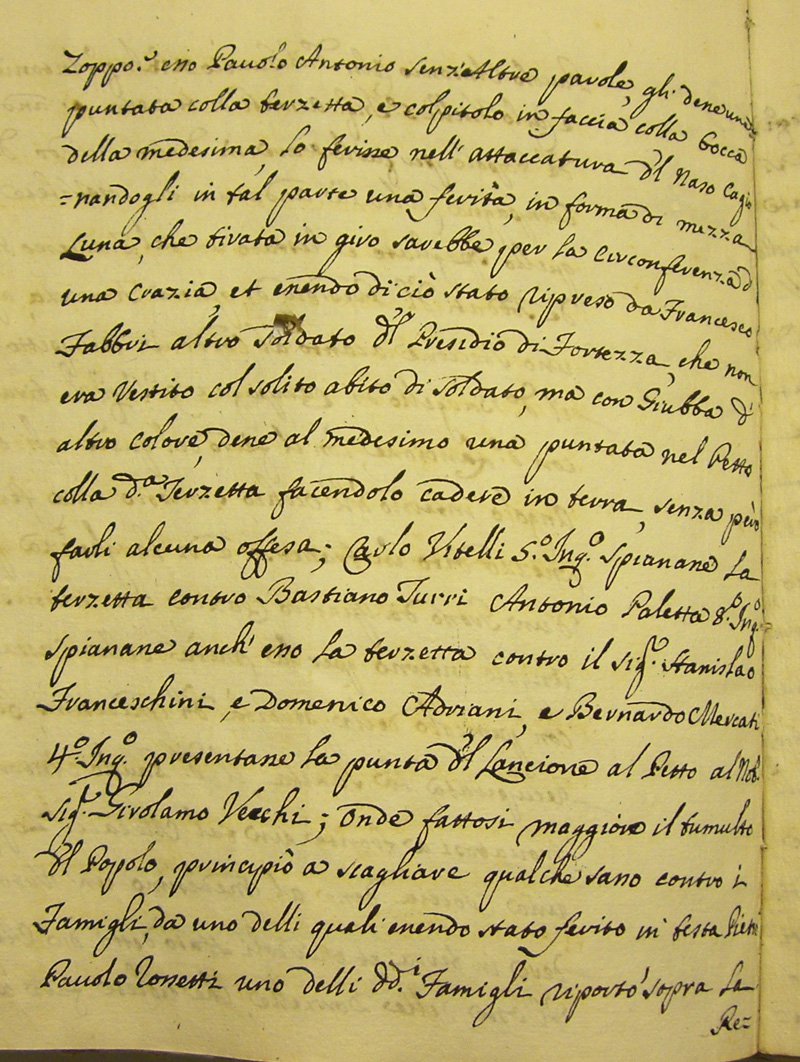 Zoppo.e esso Pauolo Antonio senz'Altre parole, gli dene una
puntata colla terzetta, e colpitolo in faccia colla bocca
della medesima, lo ferisse nell'attaccatura dl Naso Cagio
=nandogli in tal parte una ferita, in forma di mezza
Luna, che tirata in giro sarebbe per la Circonferenza d
una Crazia, et essendo di ciò stato ripreso da Francesco
Fabbri altro Soldato dl Presidio di Fortezza, che non
era Vestito col solito abito di soldato, ma con Giubba d
altro colore, dene al medesimo una puntata nel Petto
colla d.a Terzetta facendolo cadere in terra, senza però
farli alcuna offesa; Carlo Vitelli 5.o Inq.o Spianasse la
terzetta contro Bastiano Turri Antonio Paletta 8.o Inq.o
spianasse anch'esso la terzetta contro il Sig.r Stanislao
Franceschini, e Domenico Adriani, e Bernardo Mercati
4.o Inq.o presentasse la punta dl Lancione al Petto al Nob.
Sig.r Girolamo Vecchi; Onde fattosi maggiore il tumulto
dl Popolo, principiò a scagliare qualche sasso contro i
Famigli, da uno delli quali essendo stato ferito in testa Pietro
Pauolo Rossetti uno delli dd.i Famigli riportò sopra la
Re=